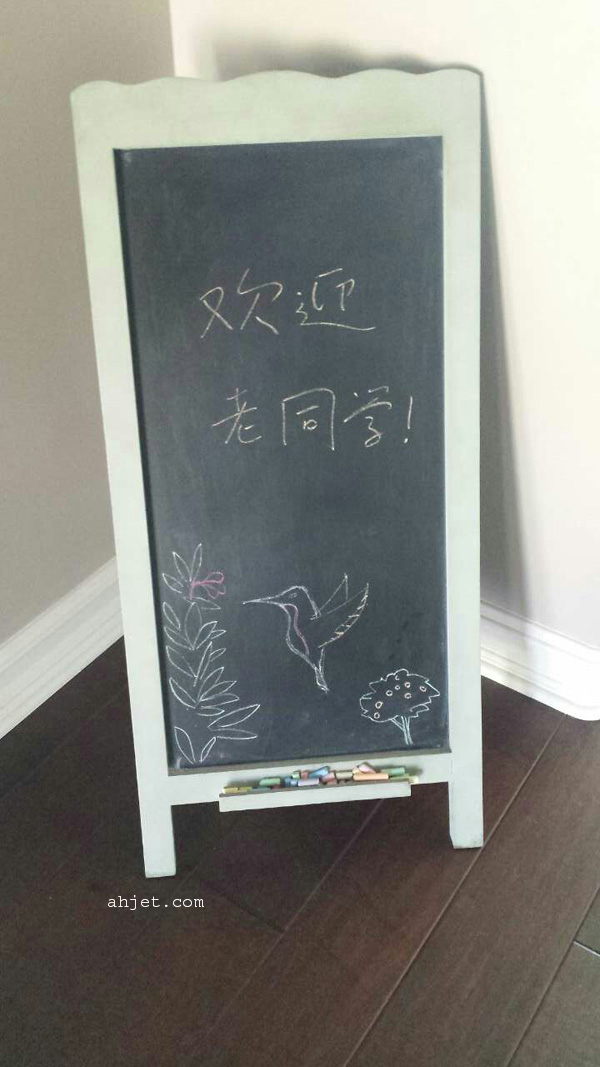 欢迎
老同学!
ahjet.com